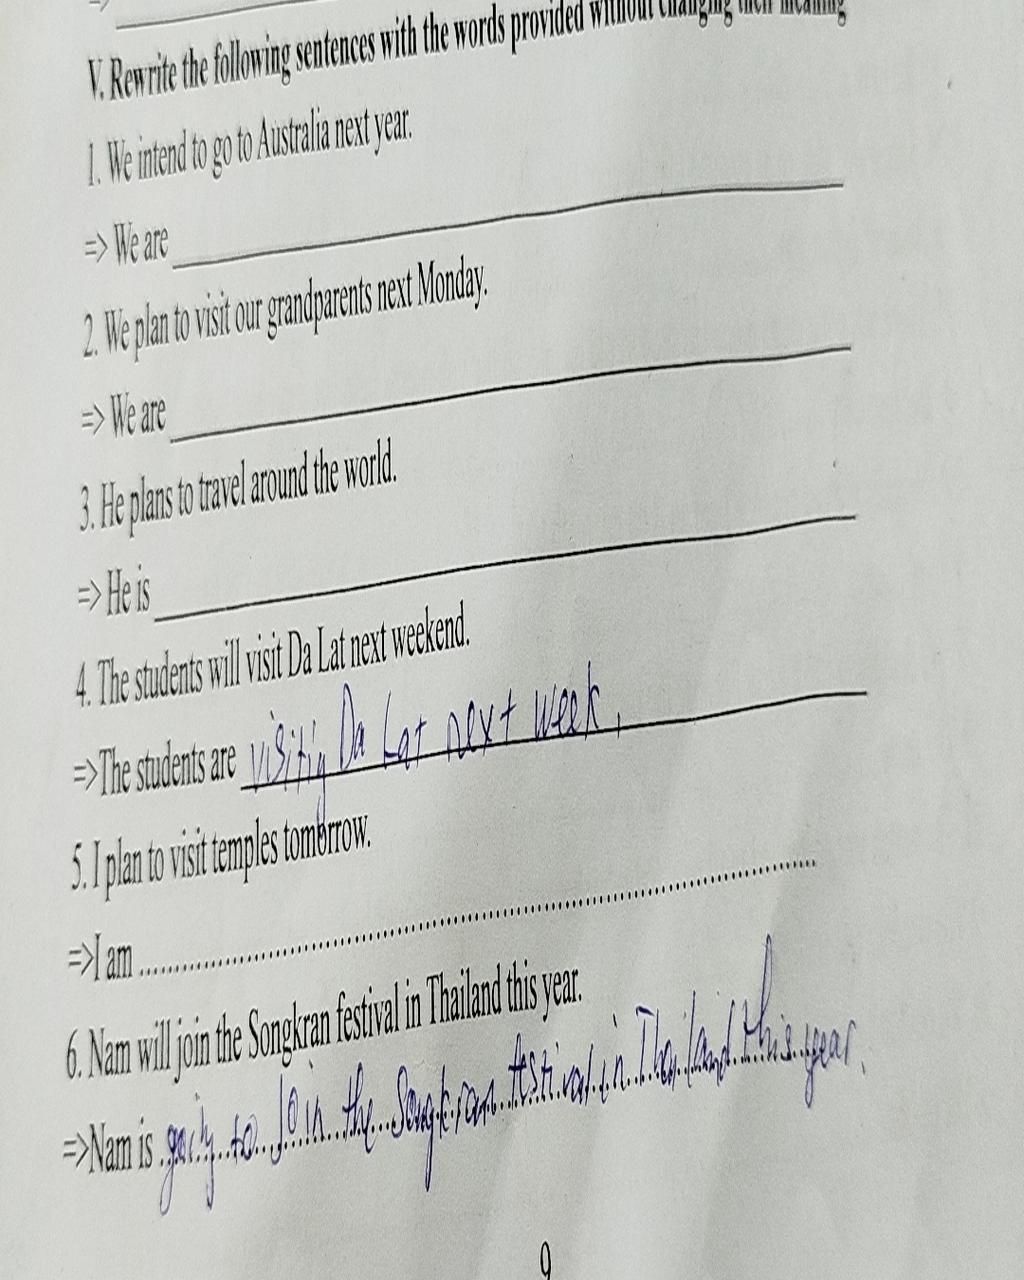 =>
V. Rewrite the following sentences with the words provided without changing their meaning
1. We intend to go to Australia next year.
=> We are
2. We plan to visit our grandparents next Monday.
=> We are
3. He plans to travel around the world.
=> He is
4. The students will visit Da Lat next weekend.
=>The students are visitig Da Lat next week.
5. I plan to visit temples tomorrow.
=>I am ..........
6. Nam will join the Songkran festival in Thailand this year.
=>Nam is going to Join the Songkran festival in Thailand this year.
9